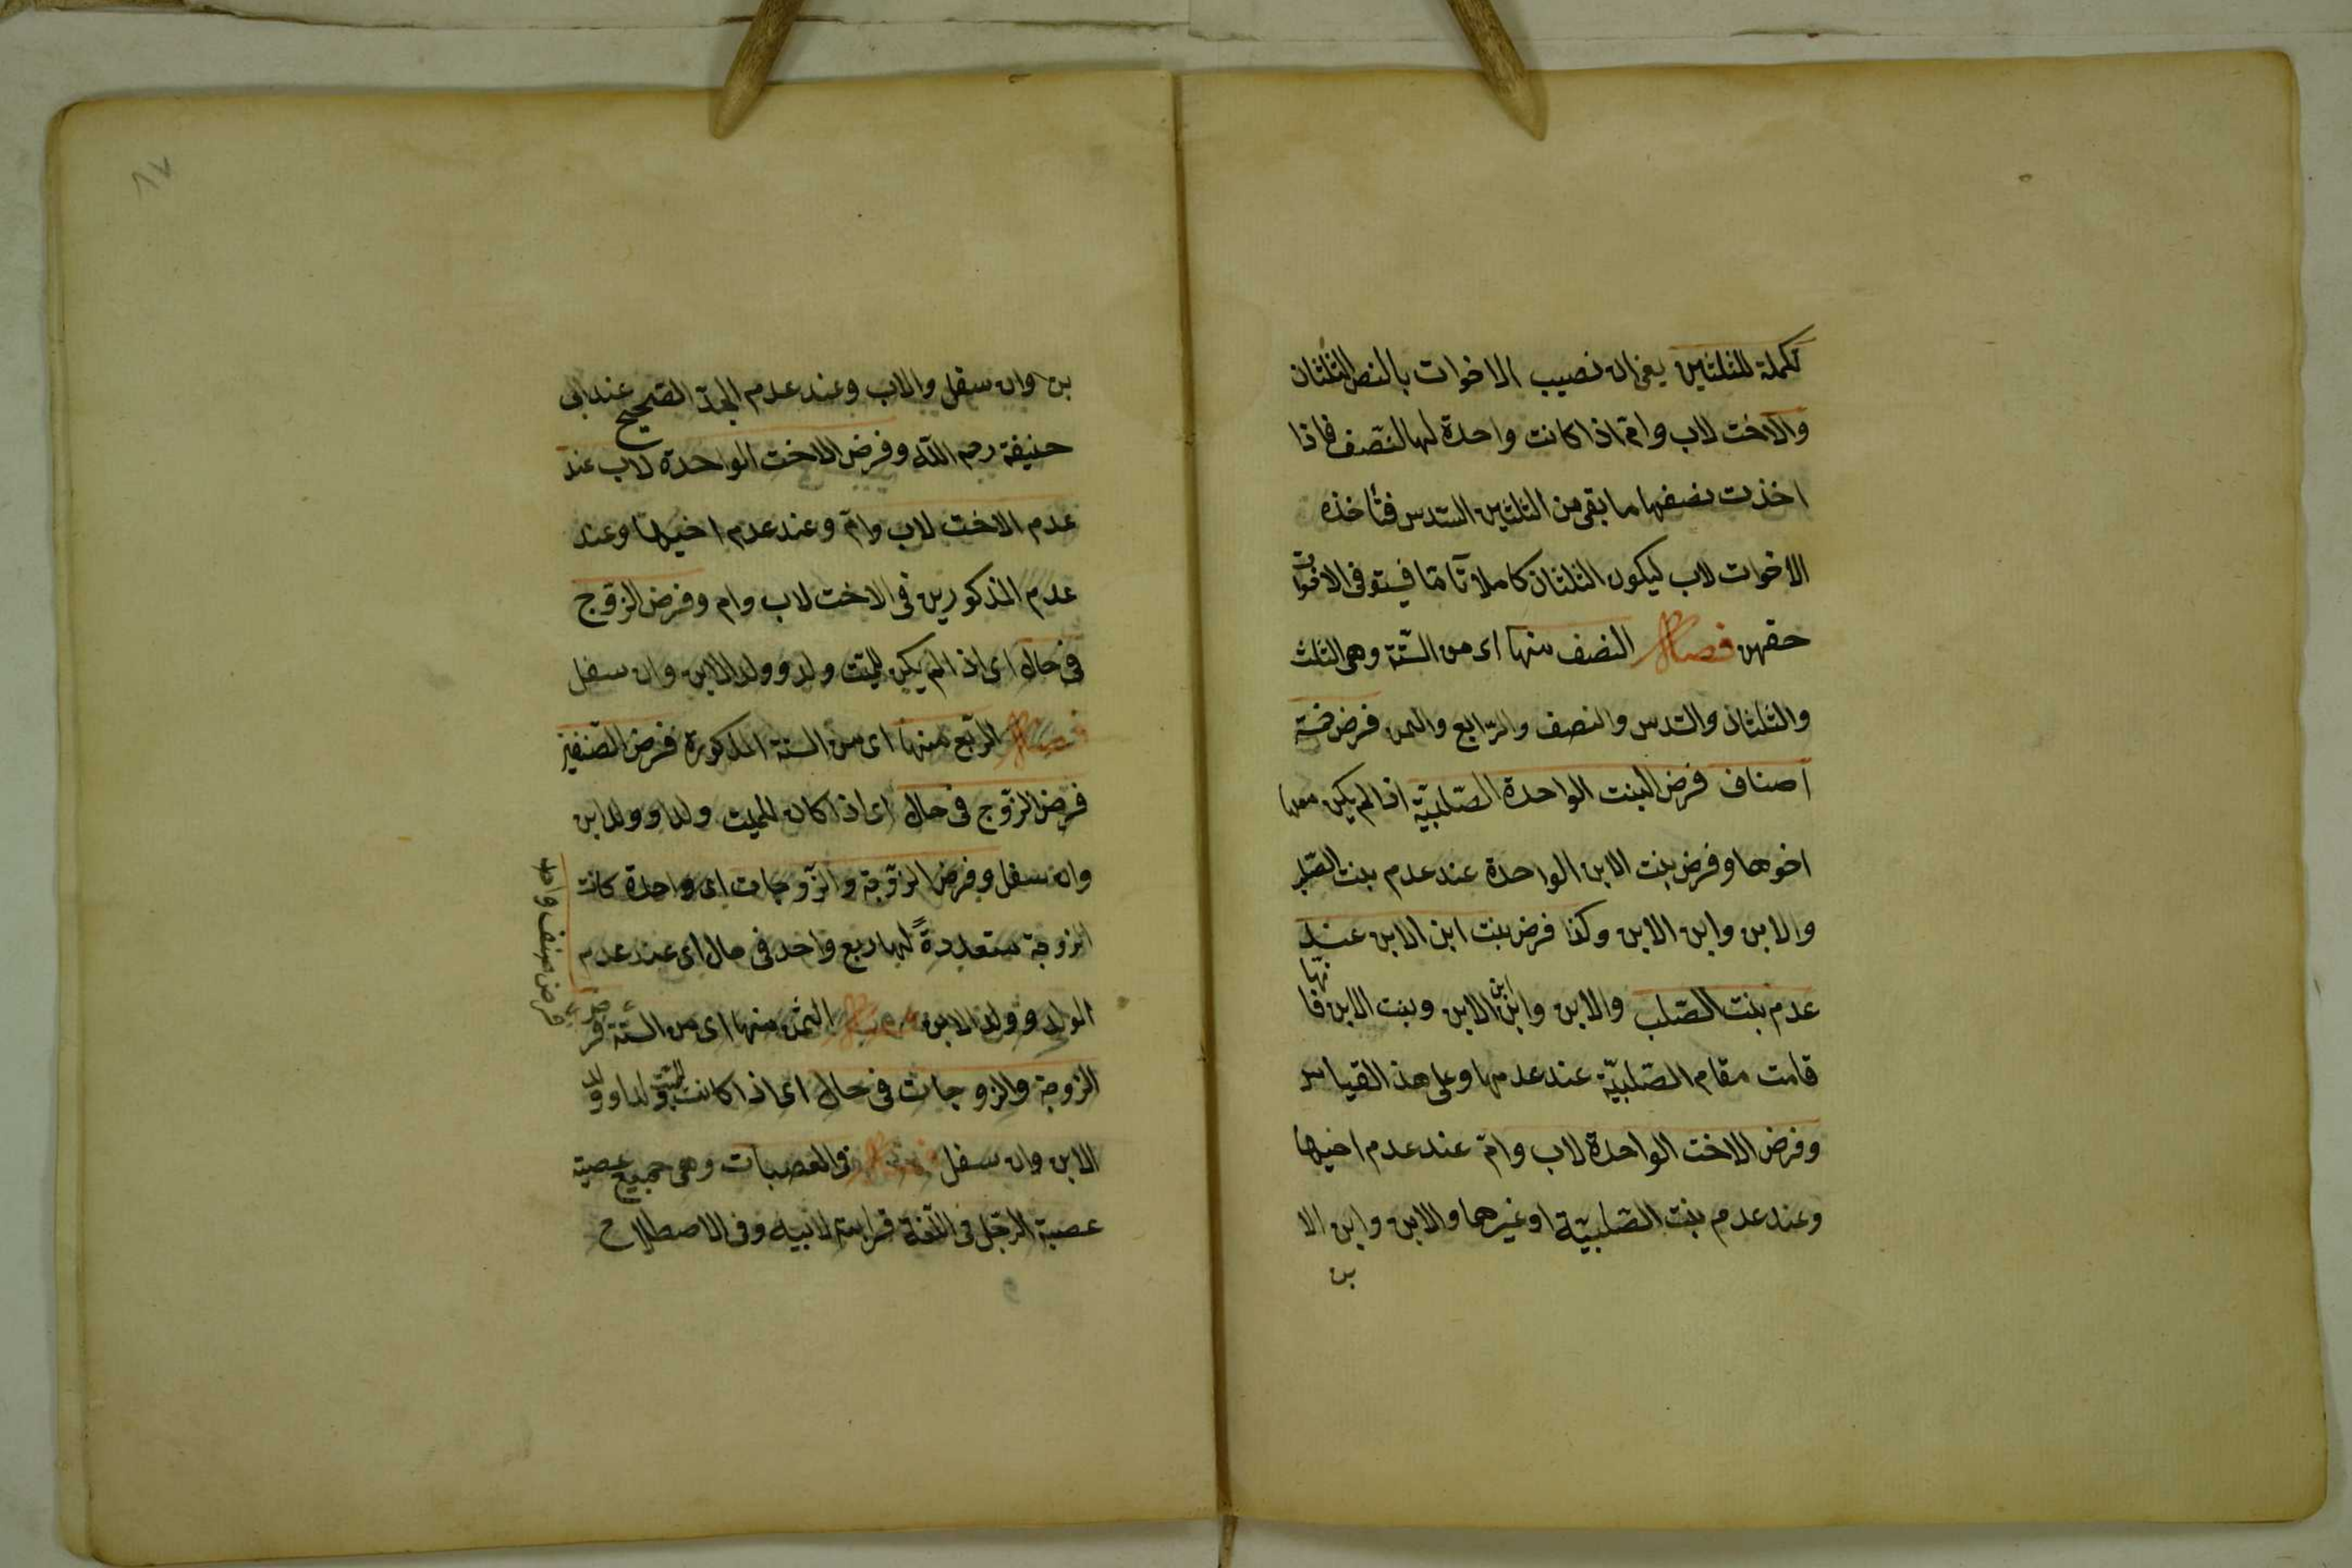 تكملة للثلثين يعنى ان نصيب الاخوات بالنص الثلثان
والاخت لاب وام اذا كانت واحدة لها النصف فاذا
اخذت نصفها ما بقى من الثلثين السّدس فتأخذه
الاخوات لاب ليكون الثلثان كاملا تامّا فيستوفى الاخوات
حقهن فصل النصف منها اى من السّتة وهى الثلث
والثلثان والسّدس والنصف والرّابع والثمن فرض خمسة
اصناف فرض البنت الواحدة الصّلبيّة اذا لم يكن معها
اخوها وفرض بنت الابن الواحدة عند عدم بنت الصّلب
والابن وابن الابن وكذا فرض بنت ابن الابن عند
عدم بنت الصّلب والابن وابن ابن الابن وبنت الابن فانّها
قامت مقام الصّلبيّة عند عدمها وعلى هذ القياس
وفرض الاخت الواحدة لاب وامّ عند عدم اخيها
وعند عدم بنت الصّلبيّة او غيرهما والابن وابن الا
بن
٨٧
بن وان سفل والاب وعند عدم الجدّ الصّحيح عند ابى
حنيفة رحم اللّه وفرض الاخت الواحدة لاب عند
عدم الاخت لاب وامّ وعند عدم اخيها وعند
عدم المذكورين فى الاخت لاب وام وفرض الزّوج
فى حال اى اذا لم يكن للميّت ولد وولد الابن وان سفل
فصل الرّبع منها اى من الستة المذكورة فرض الصّنفين
فرض الزّوج فى حال اى اذا كان للميت ولد او ولد ابن
وان سفل وفرض الزّوجة والزّوجات اى واحدة كانت
الزوجة متعددةً لها ربع واحد فى حال اى عند عدم
الولد وولد الابن فصل الثمن منها اى من السّتّة فرض
فرض صنف واحد
الزوجة والزوجات فى حال اى اذا كانت للميّت ولد او ولد
الابن وان سفل فصل فى العصبات وهى جميع عصبة
عصبة الرّجل فى اللّغة قرابته لابيه وفى الاصطلاح